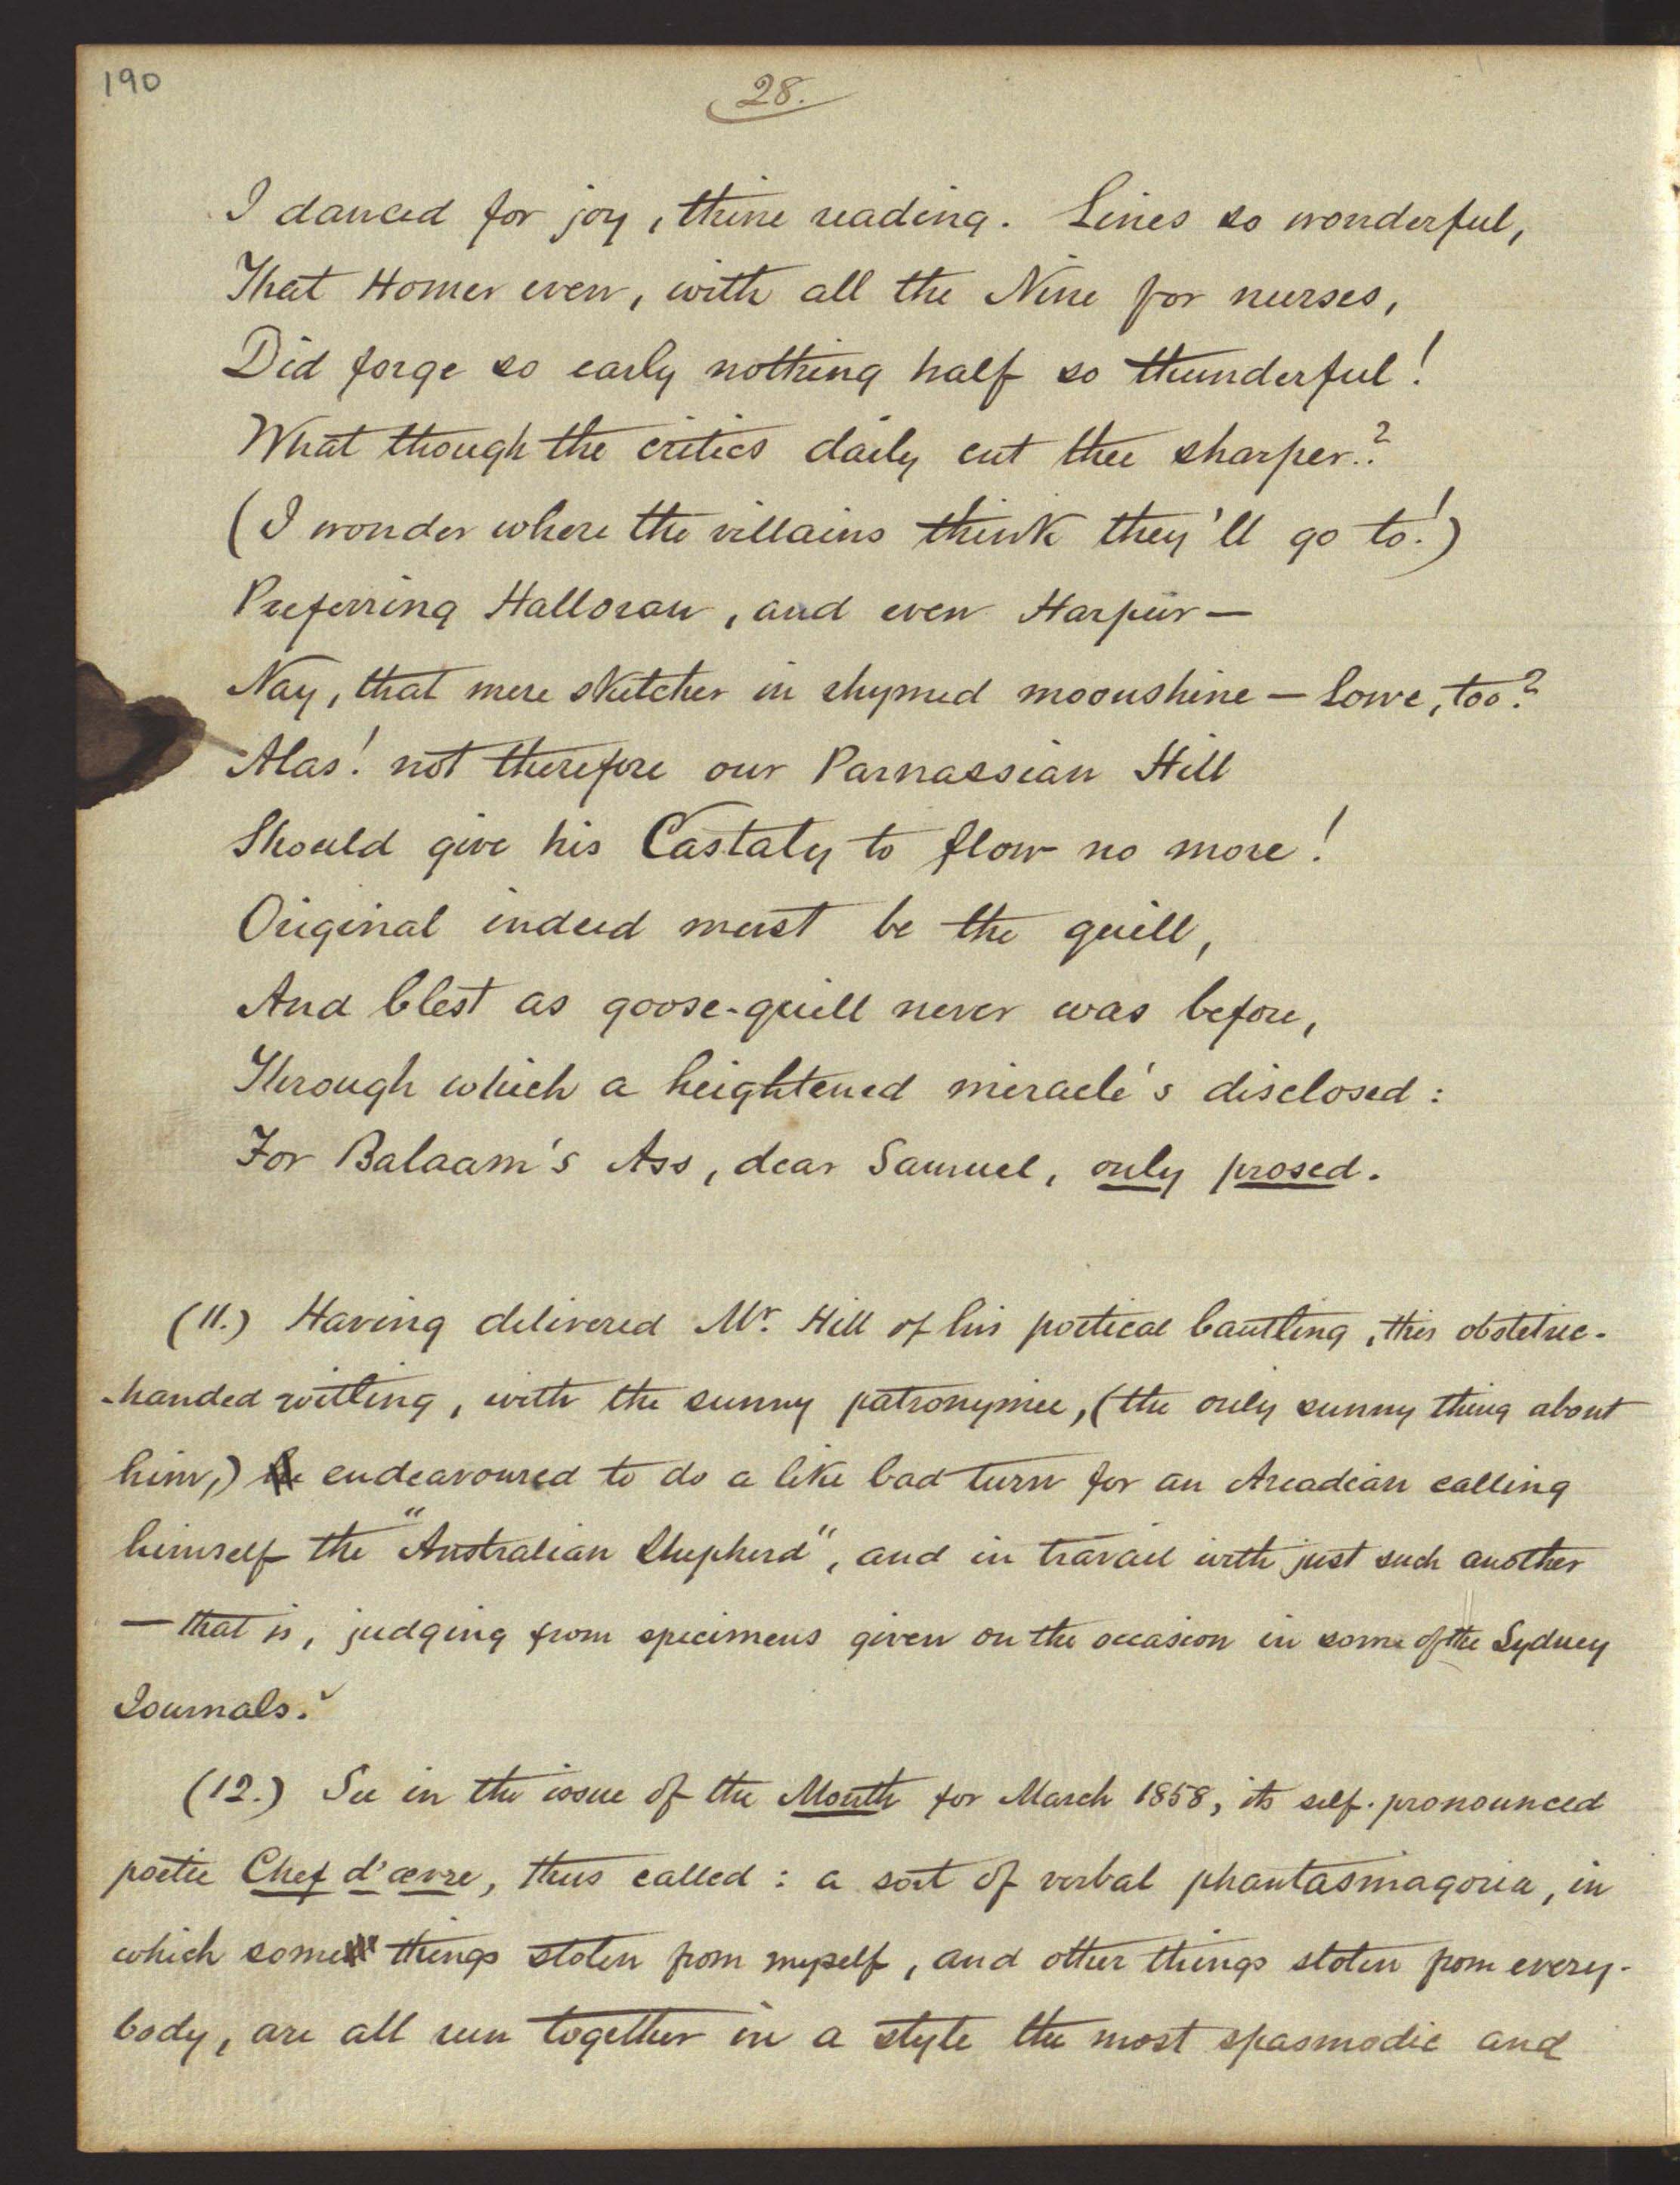 190
28.
I danced for joy, thine reading. Lines so wonderful,
That Homer even, with all the Nine for nurses,
Did forge so early nothing half so thunderful!
What though the critics daily cut thee sharper?
(I wonder where the villains think they'll go to!)
Preferring Halloran, and even Harpur—
Nay, that mere sketcher in rhymed moonshine — Lowe, too?
Alas! not therefore our Parnassian Hill
Should give his Castaly to flow no more!
Original indeed must be the quill,
And blest as goose-quill never was before,
Through which a heightened miracle's disclosed:
For Balaam's Ass, dear Samuel, only prosed.
(11.) Having delivered Mr. Hill of his poetical bantling, this obstetric-
-handed witling, with the sunny patronymic, (the only sunny thing about
him,) he endeavoured to do a like bad turn for an Arcadian calling
himself the "Australian Shepherd", and in travail with just such another
— that is, judging from specimens given on the occasion in some of the Sydney
Journals.
(12.) See in the issue of the Month for March 1858, its self-pronounced
poetic Chef d'œvre, thus called: a sort of verbal phantasmagoria, in
which some things stolen from myself, and other things stolen from every-
body, are all run together in a style the most spasmodic and